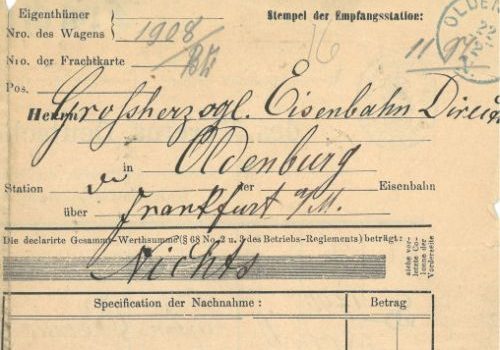 Eigenthümer
Stempel der Empfangsstation:
Nro. des Wagens 1908
No. der Frachtkarte
16
11
OLDE
Pos.
Herrn Grossherzogl. Eisenbahn Direc
in Oldenburg
Station der Eisenbahn
über Frankfurt a/M.
Die declarirte Gesammt-Werthsumme (§ 68 No. 2 u. 3 des Betriebs-Reglements) beträgt:
siehe vor-
letzte Co-
lonne der
Vorderseite
Nichts
Specification der Nachnahme: Betrag